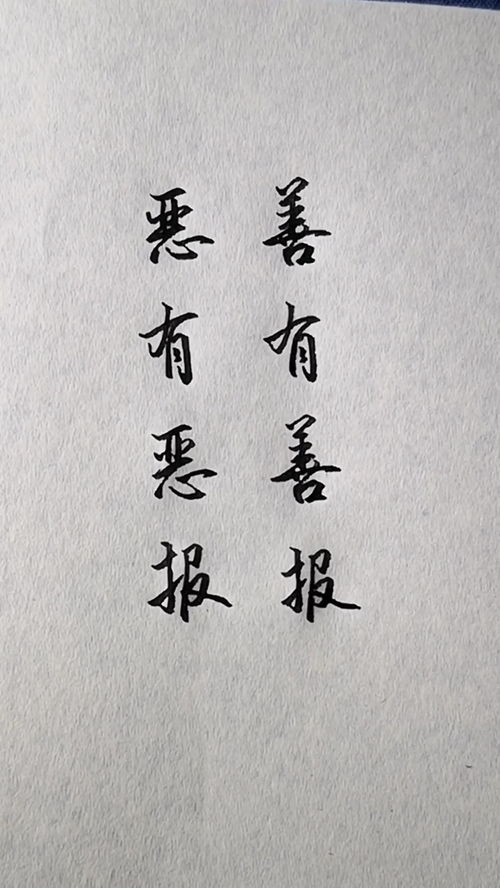 善有善报
恶有恶报